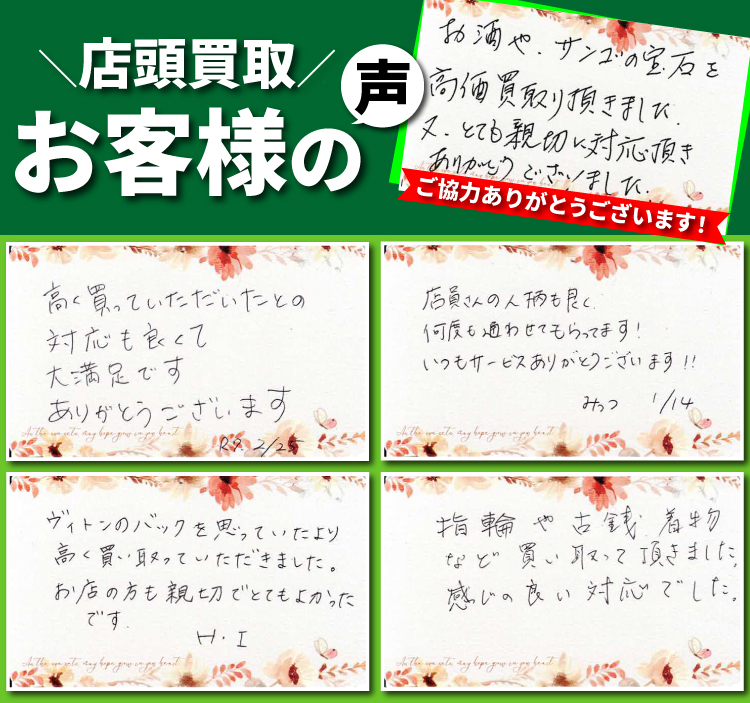 店頭買取
お客様の声
お酒や、サンゴの宝石を
高価買取り頂きました。
又、とても親切に対応頂き
ありがとうございました。
ご協力ありがとうございます!
高く買っていただいたとの
対応も良くて
大満足です
ありがとうございます
R7. 2/25
店員さんの人柄も良く
何度も通わせてもらってます!
いつもサービスありがとうございます!!
みっつ 1/14
ヴィトンのバックを思っていたより
高く買い取っていただきました。
お店の方も親切でとてもよかった
です。
H・I
指輪や古銭、着物
など買い取って頂きました。
感じの良い対応でした。